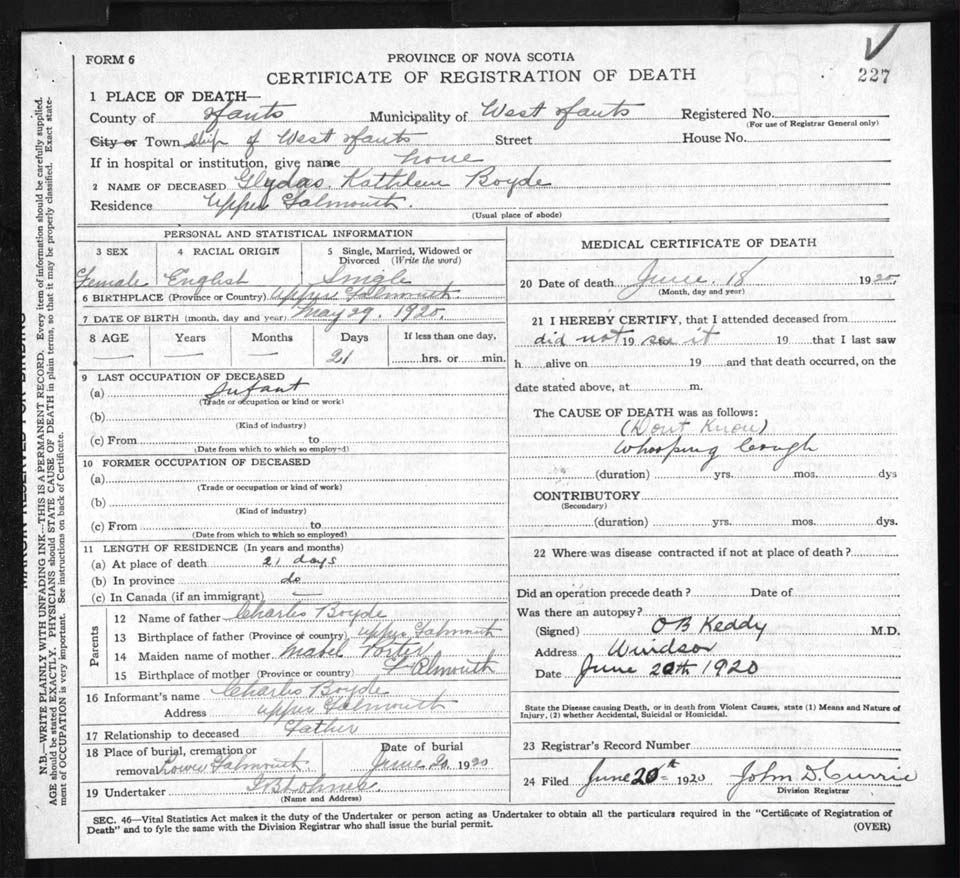 FORM 6
PROVINCE OF NOVA SCOTIA
227
CERTIFICATE OF REGISTRATION OF DEATH
1 PLACE OF DEATH—
County of Hants Municipality of West Hants Registered No.
(For use of Registrar General only)
City or Town ship of West Hants Street House No.
If in hospital or institution, give name home
2 NAME OF DECEASED Glydas Kathleen Boyde
Residence Upper Falmouth.
(Usual place of abode)
PERSONAL AND STATISTICAL INFORMATION
3 SEX 4 RACIAL ORIGIN 5 Single, Married, Widowed or Divorced (Write the word)
Female English Single
6 BIRTHPLACE (Province or Country) Upper Falmouth.
7 DATE OF BIRTH (month, day and year) May 29. 1920.
8 AGE Years Months Days If less than one day,
— — 21 hrs. or min.
9 LAST OCCUPATION OF DECEASED
(a) Infant
(Trade or occupation or kind or work)
(b)
(Kind of industry)
(c) From to
(Date from which to which so employed)
10 FORMER OCCUPATION OF DECEASED
(a)
(Trade or occupation or kind of work)
(b)
(Kind of industry)
(c) From to
(Date from which to which so employed)
11 LENGTH OF RESIDENCE (In years and months)
(a) At place of death 21 days
(b) In province do
(c) In Canada (if an immigrant) —
Parents
12 Name of father Charles Boyde
13 Birthplace of father (Province or country) Upper Falmouth
14 Maiden name of mother Mabel Porter
15 Birthplace of mother (Province or Country) Falmouth
16 Informant's name Charles Boyde
Address Upper Falmouth
17 Relationship to deceased Father
18 Place of burial, cremation or Date of burial
removal Lower Falmouth. June 20 1920
19 Undertaker
(Name and Address)
MEDICAL CERTIFICATE OF DEATH
20 Date of death June. 18 1920.
(Month, day and year)
21 I HEREBY CERTIFY, that I attended deceased from
did not 19 see it 19 that I last saw
h alive on 19 and that death occurred, on the
date stated above, at m.
The CAUSE OF DEATH was as follows:
(Dont Know)
Whooping Cough
(duration) yrs. mos. dys
CONTRIBUTORY
(Secondary)
(duration) yrs. mos. dys.
22 Where was disease contracted if not at place of death?
Did an operation precede death? Date of
Was there an autopsy?
(Signed) O B Keddy M.D.
Address Windsor
Date June 20th 1920
State the Disease causing Death, or in death from Violent Causes, state (1) Means and Nature of
Injury, (2) whether Accidental, Suicidal or Homicidal.
23 Registrar's Record Number
24 Filed June 20th 1920 John D. Currie
Division Registrar
SEC. 46—Vital Statistics Act makes it the duty of the Undertaker or person acting as Undertaker to obtain all the particulars required in the "Certificate of Registration of
Death" and to fyle the same with the Division Registrar who shall issue the burial permit.
(OVER)
MARGIN RESERVED FOR BINDING
N.B.—WRITE PLAINLY WITH UNFADING INK—THIS IS A PERMANENT RECORD. Every item of information should be carefully supplied.
AGE should be stated EXACTLY. PHYSICIANS should STATE CAUSE OF DEATH in plain terms, so that it may be properly classified. Exact state-
ment of OCCUPATION is very important. See instructions on back of Certificate.